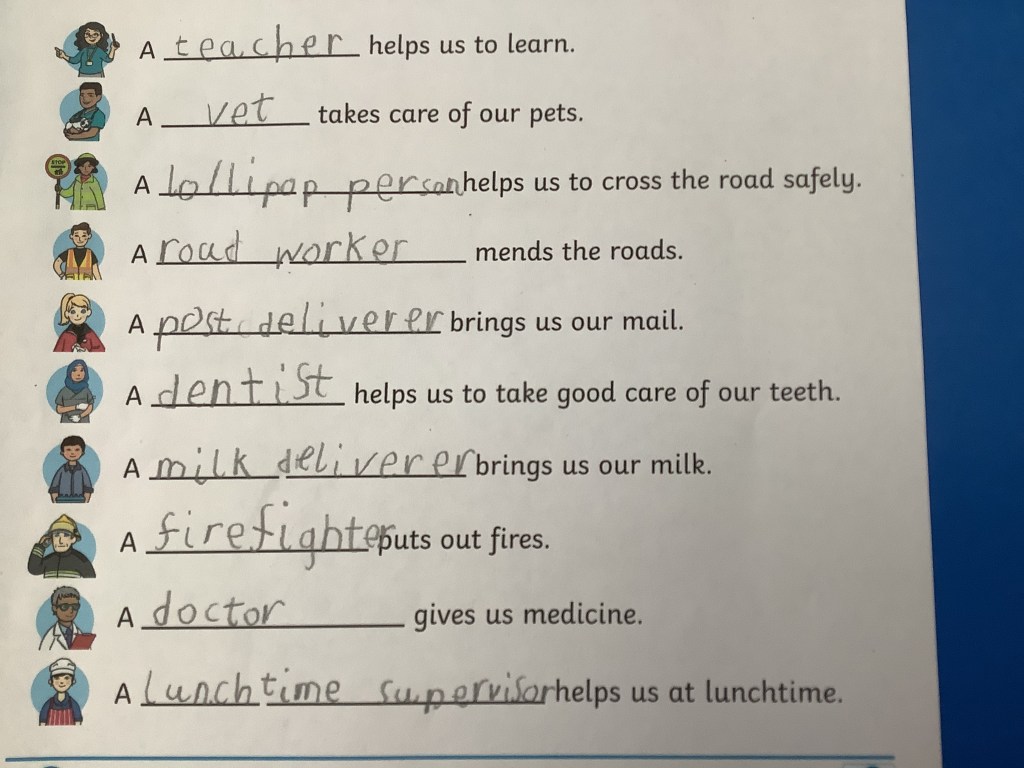 A teacher helps us to learn.
A vet takes care of our pets.
STOP
A lollipop person helps us to cross the road safely.
A road worker mends the roads.
A post deliverer brings us our mail.
A dentist helps us to take good care of our teeth.
A milk deliverer brings us our milk.
A firefighter puts out fires.
A doctor gives us medicine.
A lunchtime supervisor helps us at lunchtime.